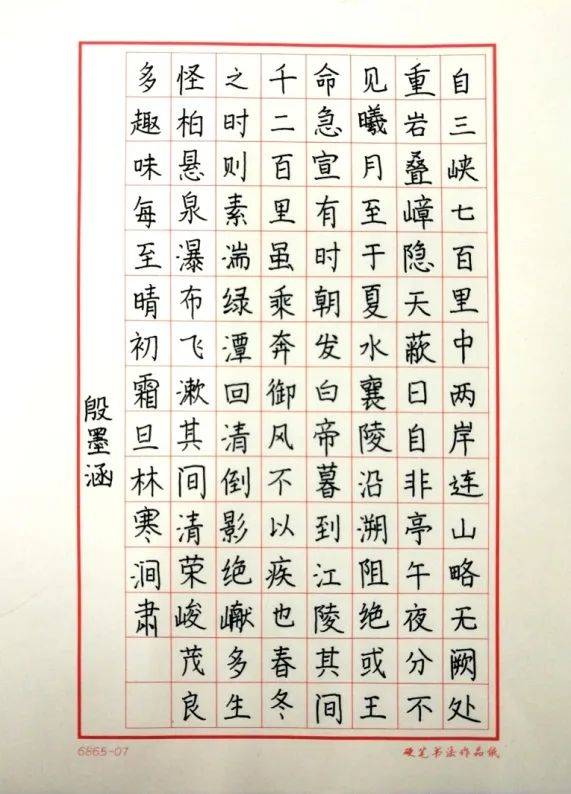 自三峡七百里中两岸连山略无阙处
重岩叠嶂隐天蔽日自非亭午夜分不
见曦月至于夏水襄陵沿溯阻绝或王
命急宣有时朝发白帝暮到江陵其间
千二百里虽乘奔御风不以疾也春冬
之时则素湍绿潭回清倒影绝𪩘多生
怪柏悬泉瀑布飞漱其间清荣峻茂良
多趣味每至晴初霜旦林寒涧肃
殷墨涵
6865-07
硬笔书法作品纸